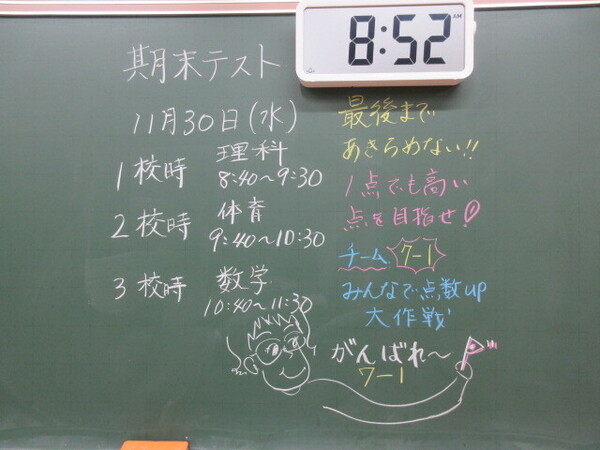 8:52
AM
期末テスト
11月30日(水)
1校時 理科
8:40〜9:30
2校時 体育
9:40〜10:30
3校時 数学
10:40〜11:30
最後まで
あきらめない!!
1点でも高い
点を目指せ!
チーム 7-1
みんなで点数up
大作戦
がんばれ〜
7-1